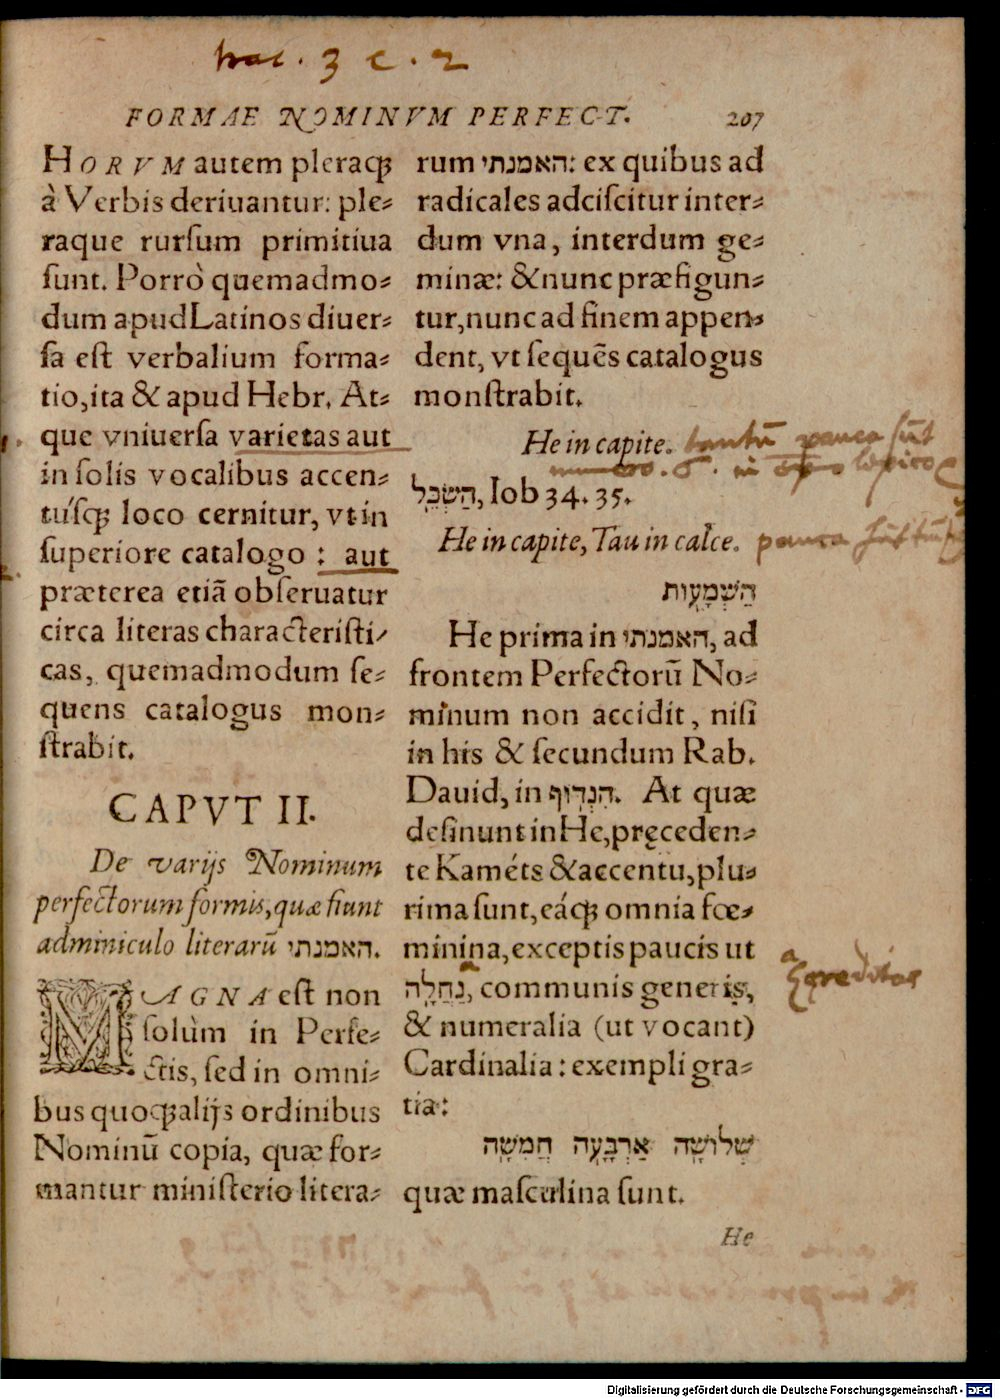 trac. 3 c. 2
FORMAE NOMINVM PERFECT. 207
HORVM autem pleraqꝫ
à Verbis deriuantur: ple-
raque rurſum primitiua
ſunt. Porrò quemadmo-
dum apud Latinos diuer-
ſa eſt verbalium forma-
tio, ita & apud Hebr. At-
que vniuerſa varietas aut
in ſolis vocalibus accen-
túſqꝫ loco cernitur, vt in
ſuperiore catalogo: aut
præterea etiã obſeruatur
circa literas characteriſti-
cas, quemadmodum ſe-
quens catalogus mon-
ſtrabit.
CAPVT II.
De varijs Nominum
perfectorum formis, quæ fiunt
adminiculo literarũ האמנתי.
MAGNA eſt non
ſolùm in Perfe-
ctis, ſed in omni-
bus quoqꝫ alijs ordinibus
Nominũ copia, quæ for-
mantur miniſterio litera-
rum האמנתי: ex quibus ad
radicales adciſcitur inter-
dum vna, interdum ge-
minæ: & nunc præfigun-
tur, nunc ad finem appen-
dent, vt ſequẽs catalogus
monſtrabit.
He in capite. tantũ pauca sũt
numero. 6. in
הַשְׂכֵּל, Iob 34. 35.
He in capite, Tau in calce. pauca
הַשְׁמָעוּת
He prima in האמנתי, ad
frontem Perfectorũ No-
minum non accidit, niſi
in his & ſecundum Rab.
Dauid, in הִנְדּוֹף. At quæ
deſinunt in He, pręceden-
te Kaméts & accentu, plu-
rima ſunt, eáqꝫ omnia fœ-
minina, exceptis paucis ut
נַחֲלָה, communis generis,
& numeralia (ut vocant)
Cardinalia: exempli gra-
tia:
שְׁלוֹשָׁה אַרְבָּעָה חֲמִשָּׁה
quæ maſculina ſunt.
He
Digitalisierung gefördert durch die Deutsche Forschungsgemeinschaft - DFG